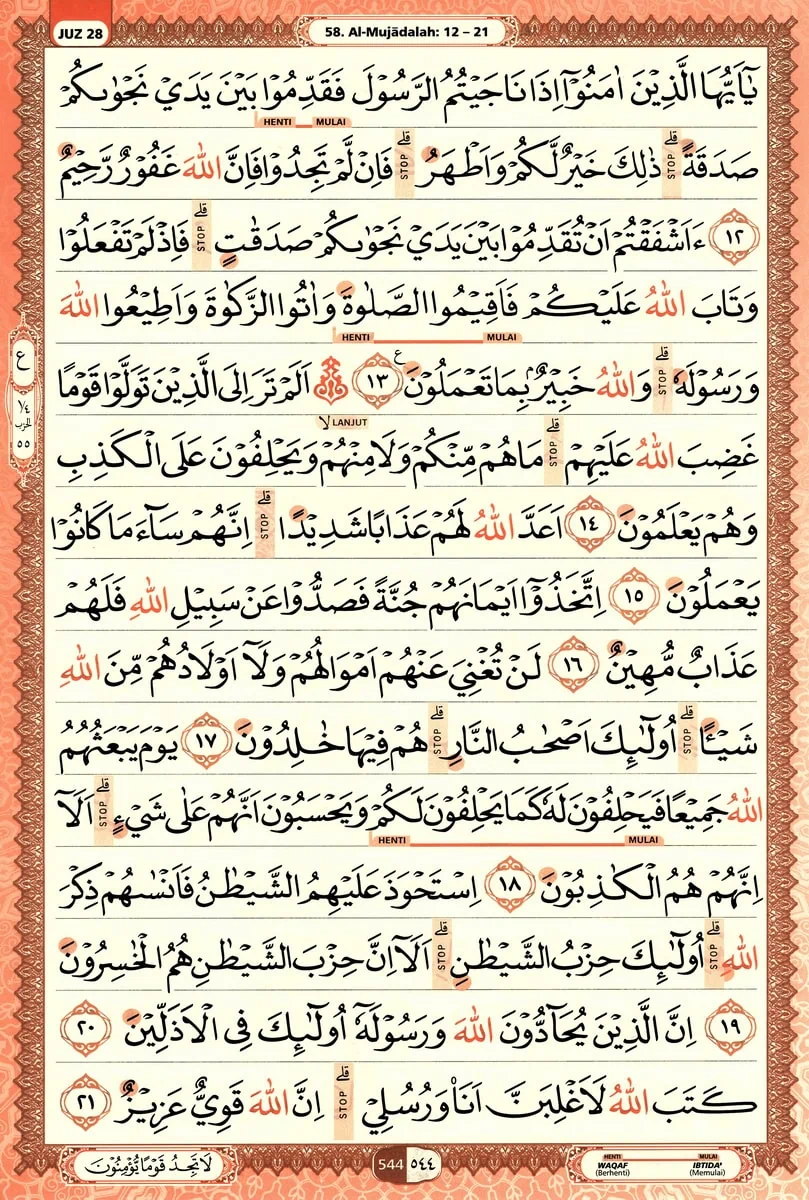 JUZ 28
58. Al-Mujādalah: 12 – 21
يٰٓاَيُّهَا الَّذِيْنَ اٰمَنُوْٓا اِذَا نَاجَيْتُمُ الرَّسُوْلَ فَقَدِّمُوْا بَيْنَ يَدَيْ نَجْوٰىكُمْ
HENTI MULAI
صَدَقَةً ۗ ذٰلِكَ خَيْرٌ لَّكُمْ وَاَطْهَرُ ۗ فَاِنْ لَّمْ تَجِدُوْا فَاِنَّ اللّٰهَ غَفُوْرٌ رَّحِيْمٌ
STOP STOP
١٢ ءَاَشْفَقْتُمْ اَنْ تُقَدِّمُوْا بَيْنَ يَدَيْ نَجْوٰىكُمْ صَدَقٰتٍ ۗ فَاِذْ لَمْ تَفْعَلُوْا
STOP
وَتَابَ اللّٰهُ عَلَيْكُمْ فَاَقِيْمُوا الصَّلٰوةَ وَاٰتُوا الزَّكٰوةَ وَاَطِيْعُوا اللّٰهَ
HENTI MULAI
وَرَسُوْلَهٗ ۗ وَاللّٰهُ خَبِيْرٌۢ بِمَا تَعْمَلُوْنَ ١٣ ع اَلَمْ تَرَ اِلَى الَّذِيْنَ تَوَلَّوْا قَوْمًا
STOP
لا LANJUT
غَضِبَ اللّٰهُ عَلَيْهِمْ ۗ مَا هُمْ مِّنْكُمْ وَلَا مِنْهُمْ وَيَحْلِفُوْنَ عَلَى الْكَذِبِ
STOP
وَهُمْ يَعْلَمُوْنَ ١٤ اَعَدَّ اللّٰهُ لَهُمْ عَذَابًا شَدِيْدًا ۗ اِنَّهُمْ سَاۤءَ مَا كَانُوْا
STOP
يَعْمَلُوْنَ ١٥ اِتَّخَذُوْٓا اَيْمَانَهُمْ جُنَّةً فَصَدُّوْا عَنْ سَبِيْلِ اللّٰهِ فَلَهُمْ
عَذَابٌ مُّهِيْنٌ ١٦ لَنْ تُغْنِيَ عَنْهُمْ اَمْوَالُهُمْ وَلَآ اَوْلَادُهُمْ مِّنَ اللّٰهِ
شَيْـًٔا ۗ اُولٰۤىِٕكَ اَصْحٰبُ النَّارِ ۗ هُمْ فِيْهَا خٰلِدُوْنَ ١٧ يَوْمَ يَبْعَثُهُمُ
STOP STOP
اللّٰهُ جَمِيْعًا فَيَحْلِفُوْنَ لَهٗ كَمَا يَحْلِفُوْنَ لَكُمْ وَيَحْسَبُوْنَ اَنَّهُمْ عَلٰى شَيْءٍ ۗ اَلَآ
STOP
HENTI MULAI
اِنَّهُمْ هُمُ الْكٰذِبُوْنَ ١٨ اِسْتَحْوَذَ عَلَيْهِمُ الشَّيْطٰنُ فَاَنْسٰىهُمْ ذِكْرَ
اللّٰهِ ۗ اُولٰۤىِٕكَ حِزْبُ الشَّيْطٰنِ ۗ اَلَآ اِنَّ حِزْبَ الشَّيْطٰنِ هُمُ الْخٰسِرُوْنَ
STOP STOP
١٩ اِنَّ الَّذِيْنَ يُحَاۤدُّوْنَ اللّٰهَ وَرَسُوْلَهٗٓ اُولٰۤىِٕكَ فِى الْاَذَلِّيْنَ ٢٠
كَتَبَ اللّٰهُ لَاَغْلِبَنَّ اَنَا۠ وَرُسُلِيْ ۗ اِنَّ اللّٰهَ قَوِيٌّ عَزِيْزٌ ٢١
STOP
ع
١/٤
الحزب
٥٥
لَا تَجِدُ قَوْمًا يُّؤْمِنُوْنَ
544 ٥٤٤
HENTI MULAI
WAQAF IBTIDA'
(Berhenti) (Memulai)